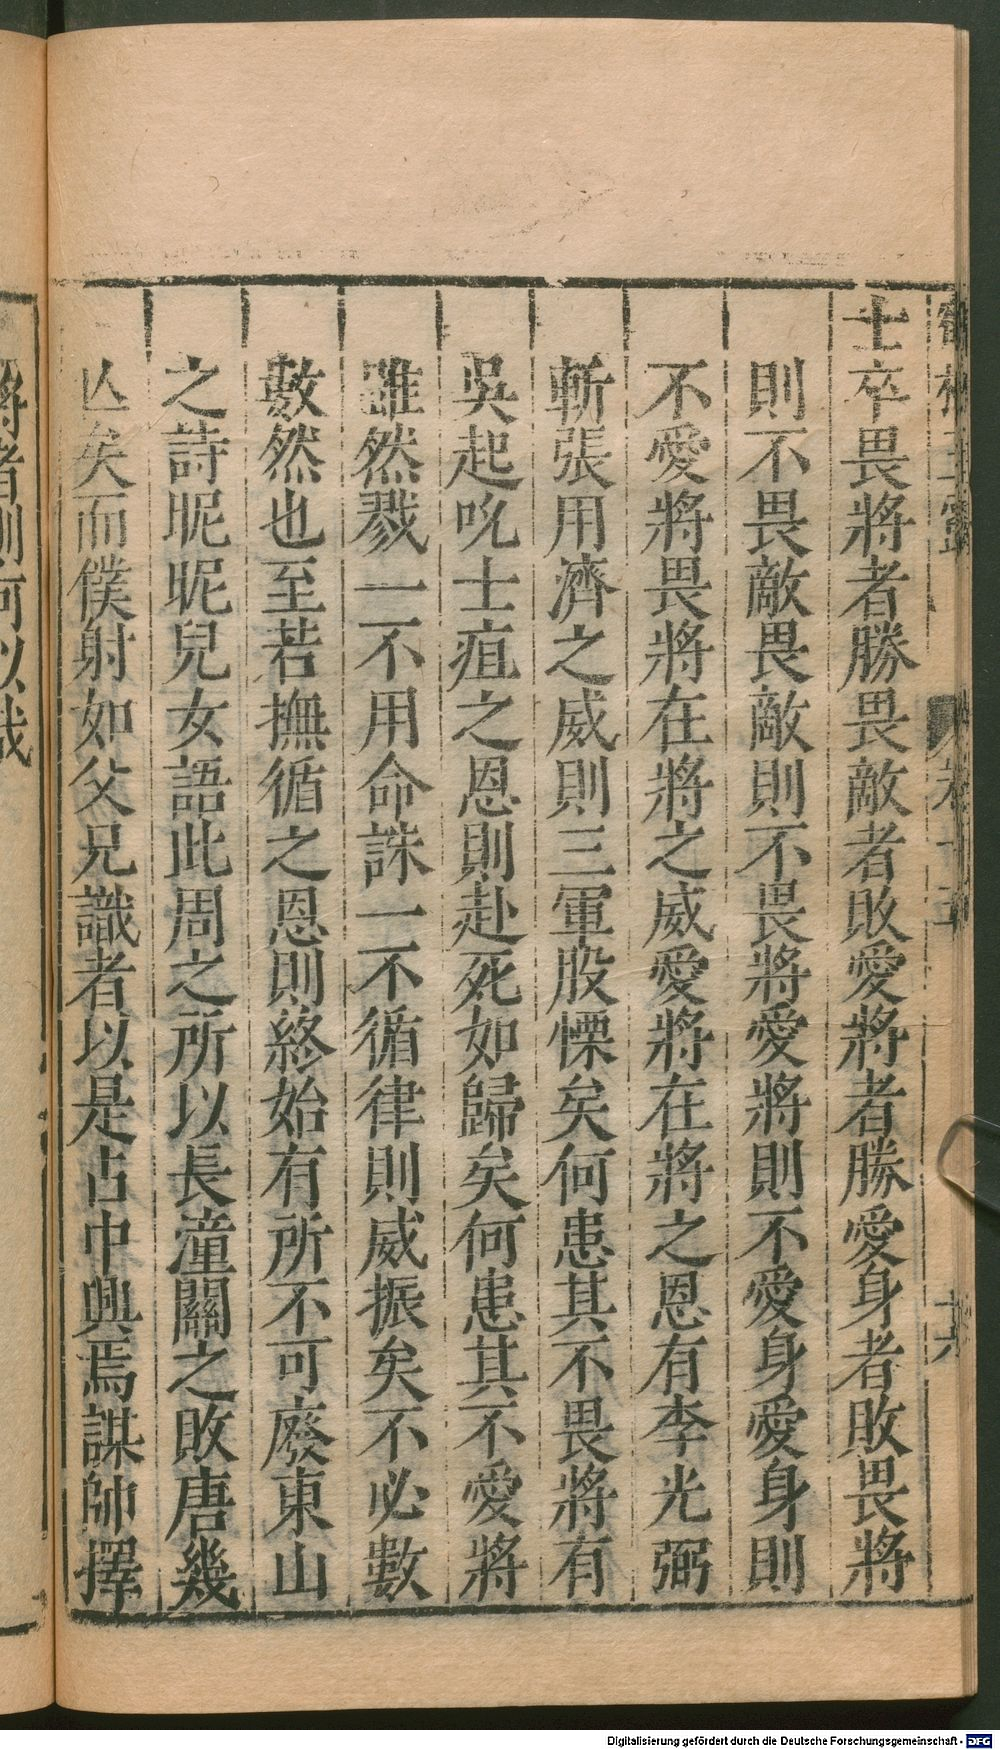 士卒畏將者勝畏敵者敗愛將者勝愛身者敗畏將
則不畏敵畏敵則不畏將愛將則不愛身愛身則
不愛將畏將在將之威愛將在將之恩有李光弼
斬張用濟之威則三軍股慄矣何患其不畏將有
吳起吮士疽之恩則赴死如歸矣何患其不愛將
雖然戮一不用命誅一不循律則威振矣不必數
數然也至若撫循之恩則終始有所不可廢東山
之詩昵昵兒女語此周之所以長潼關之敗唐幾
亾矣而僕射如父兄識者以是占中興焉謀帥擇
將者則何以哉
Digitalisierung gefördert durch die Deutsche Forschungsgemeinschaft - DFG